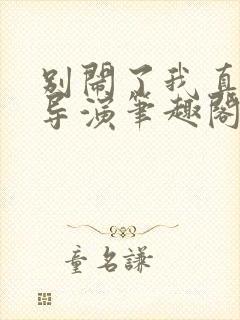 别闹了我真
导演笔趣阁
童名谦